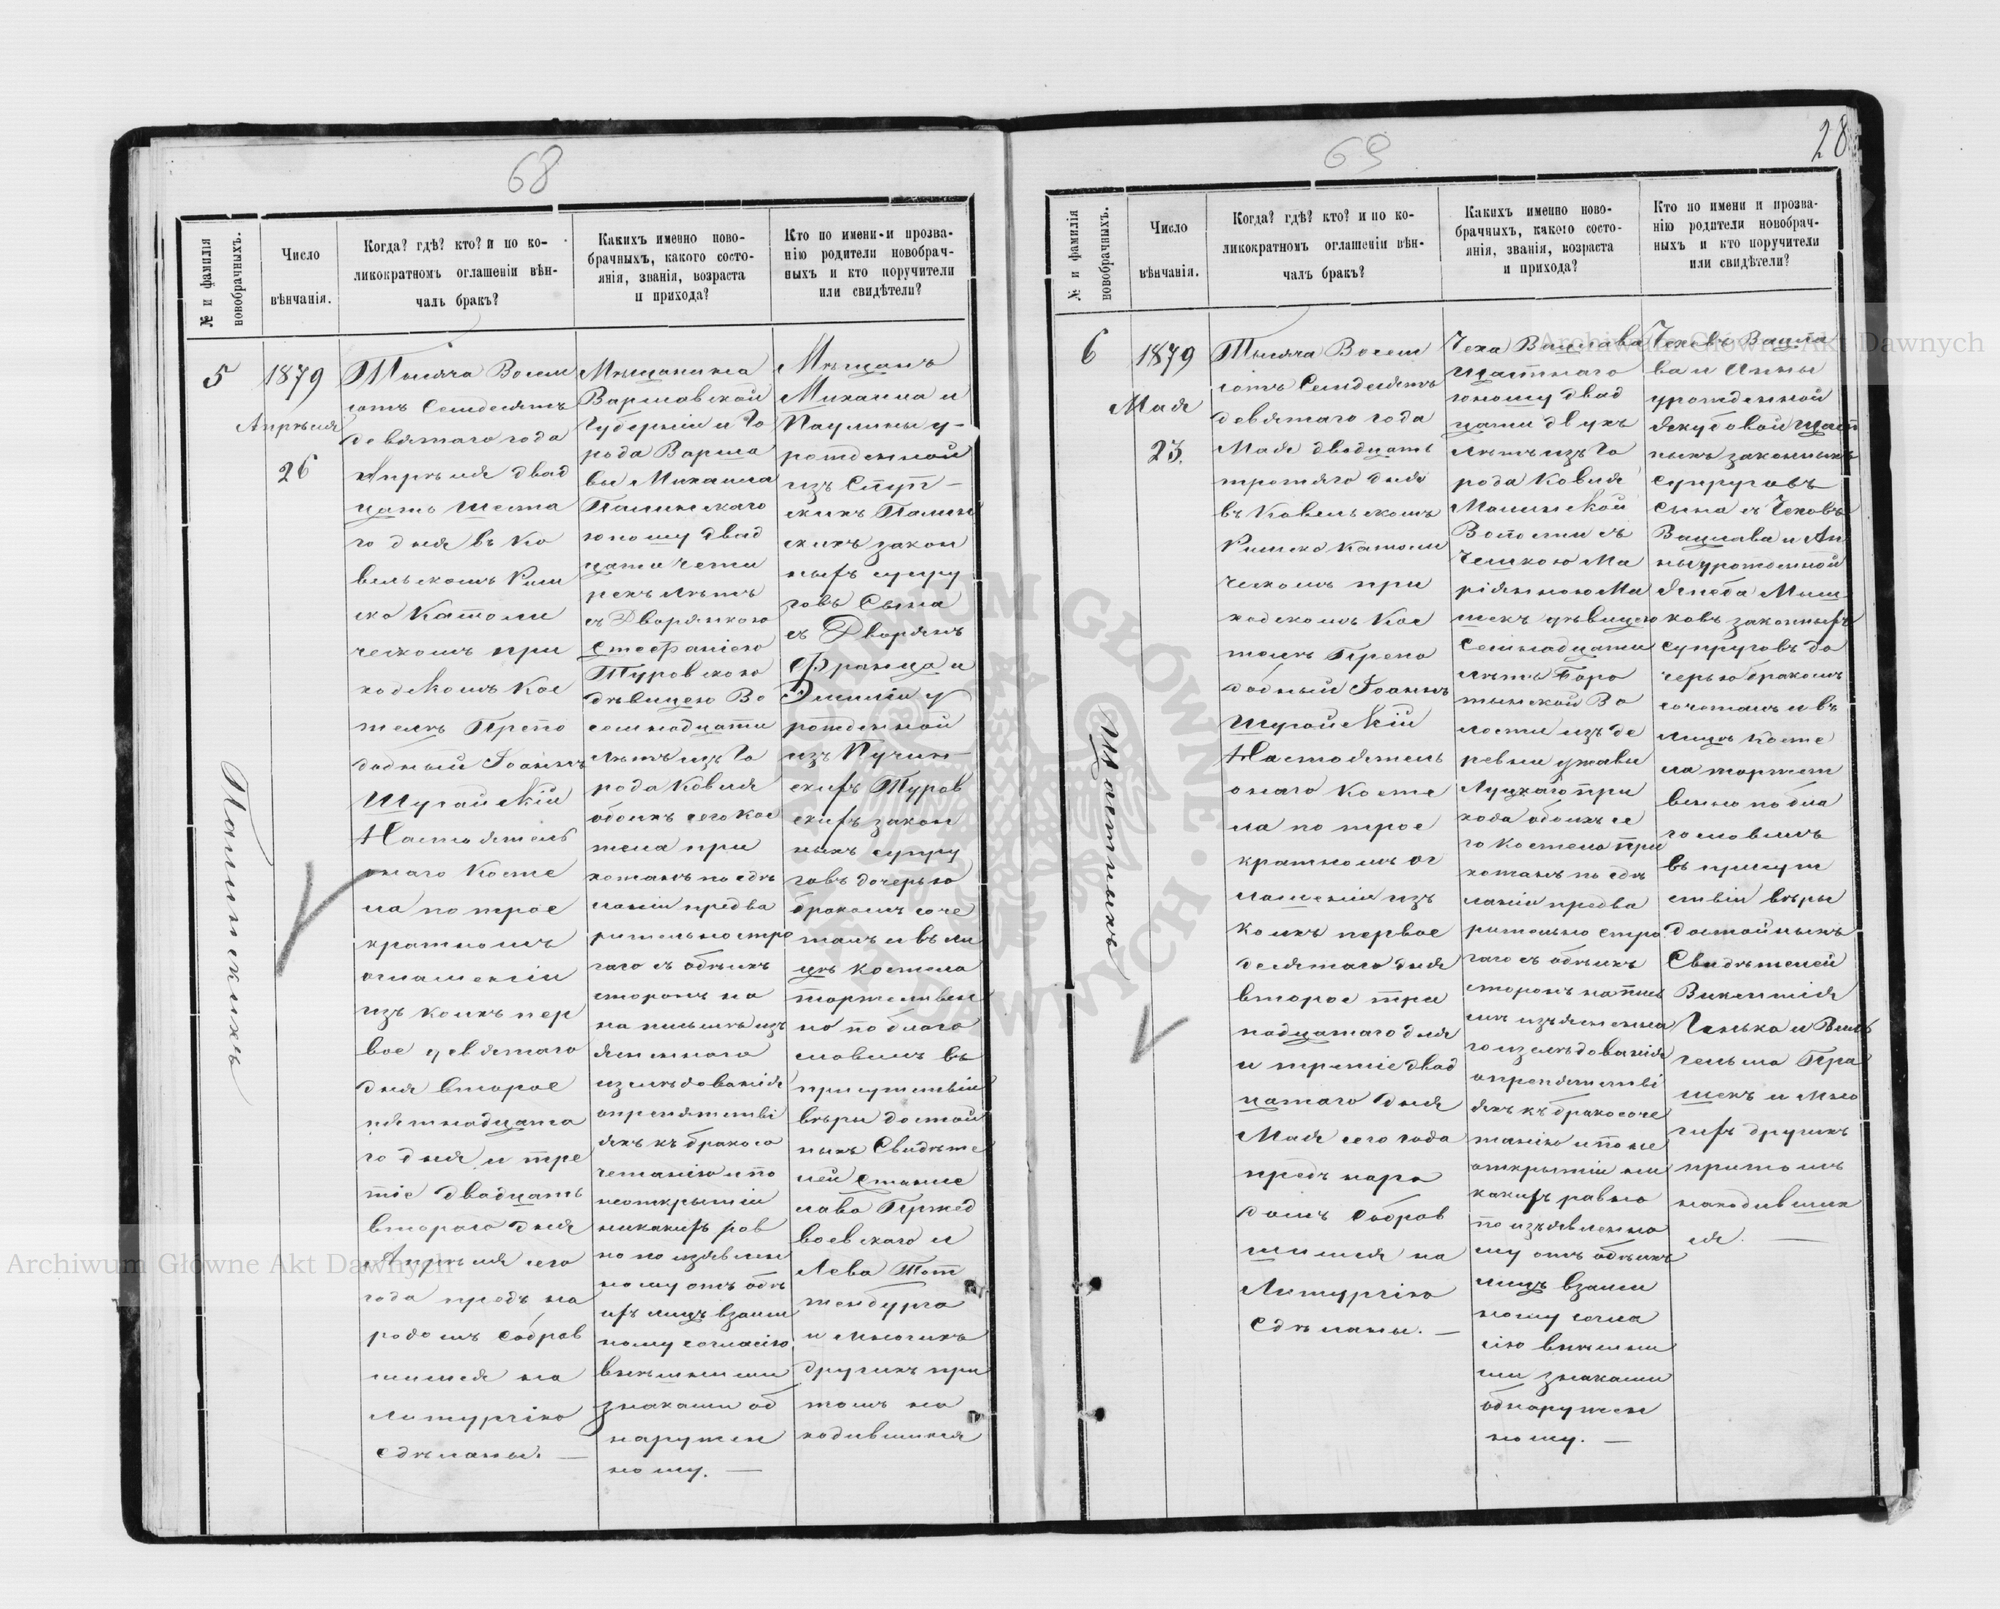 68
№ и фамилія
новобрачныхъ.
Число
вѣнчанія.
Когда? гдѣ? кто? и по ко-
ликократномъ оглашеніи вѣн-
чалъ бракъ?
Какихъ именно ново-
брачныхъ, какого состо-
янія, званія, возраста
и прихода?
Кто по имени и прозва-
нію родители новобрач-
ныхъ и кто поручители
или свидѣтели?
5
1879
Апрѣля
26
Тысяча Восем
сотъ Семдесятъ
девятаго года
Апрѣля двад
цать шеста
го дня въ Ко
вельскомъ Рим
ско Католи
ческомъ при
ходскомъ Кос
телѣ Препо
добный Іоаннъ
Шугайскій
Настоятель
онаго Косте
ла по трое
кратномъ
оглашеніи
изъ коихъ пер
вое девятаго
дня второе
пятнадцата
го дня и тре
тіе двадцать
втораго дня
Апрѣля сего
года предъ на
родомъ собрав
шимся на
Литургію
сдѣланы. —
Мѣщанина
Варшавской
Губерніи и Го
рода Варша
вы Михаила
Палинскаго
юношу двад
цати четы
рехъ лѣтъ
съ Дворянкою
Стефаніею
Туровскою
дѣвицею Во
семнадцати
лѣтъ изъ Го
рода Ковля
обоихъ сего Кос
тела при
хожанъ по сдѣ
ланіи предва
рительно стро
гаго съ обѣихъ
сторонъ на
на письмѣ изъ
ясненнаго
изслѣдованія
опрепятстві
яхъ къ бракосо
четанію и по
неоткрытіи
никакихъ рав
но по изявлен
ному отъ обѣ
ихъ лицъ взаим
ному согласію
внѣшними
знаками об
наружен
ному. —
Мѣщанъ
Михаила и
Паулины у-
рожденной
изъ Ступ-
скихъ Палин
скихъ закон
ныхъ супру
говъ Сына
съ Дворянъ
Франца и
Эмиліи у
рожденной
изъ Пучин
скихъ Туров
скихъ закон
ныхъ супру
говъ дочерью
бракомъ соче
талъ и въ ли
цѣ костела
торжествен
но поблаго
словилъ въ
присутствіи
вѣры достой
ныхъ Свидѣте
лей Станис
лава Пржед
воевскаго и
Лева Тот
тенбурга
и многихъ
другихъ при
томъ на
ходившихся
Палинскихъ
69
28
№ и фамилія
новобрачныхъ.
Число
вѣнчанія.
Когда? гдѣ? кто? и по ко-
ликократномъ оглашеніи вѣн-
чалъ бракъ?
Какихъ именно ново-
брачныхъ, какого состо-
янія, званія, возраста
и прихода?
Кто по имени и прозва-
нію родители новобрач-
ныхъ и кто поручители
или свидѣтели?
6
1879
Мая
23.
Тысяча Восем
сотъ Семдесятъ
девятаго года
Мая двадцать
третяго дня
въ Ковельскомъ
Римско Католи
ческомъ при
ходскомъ Кос
телѣ Препо
добный Іоаннъ
Шугайскій
Настоятель
онаго Косте
ла по трое
кратномъ ог
лашеніи изъ
коихъ первое
десятаго дня
второе три
надцатаго дня
и третіе двад
цатаго дня
Мая сего года
предъ наро
домъ собрав
шимся на
Литургію
Сдѣланы. —
Чеха Вацлава
Щастнаго
юношу двад
цати двухъ
лѣтъ изъ Го
рода Ковля
Волости съ
Чешкою Ма
ріянною Ма
шекъ дѣвицею
Семнадцати
лѣтъ
Во
лости изъ де
ревни
Луцкаго при
хода обоихъ се
го Костела при
хожанъ по сдѣ
ланіи предва
рительно стро
гаго съ обѣихъ
сторонъ на пись
мѣ изъясненна
го изслѣдованія
опрепятстві
яхъ къ бракосоче
танію и по не
открытіи ни
какихъ равно
по изъявленно
му отъ обѣихъ
лицъ взаим
ному согла
сію внѣшни
ми знаками
обнаружен
ному. —
Чеховъ Вацла
ва и Анны
урожденной
Якубовой Щаст
ныхъ законныхъ
супруговъ
Сына съ Чеховъ
Вацлава и Ан
ны урожденной
Маш
ковъ законныхъ
супруговъ до
черью бракомъ
сочеталъ и въ
лицѣ Косте
ла торжест
венно побла
гословилъ
въ присут
ствіи вѣры
достойныхъ
Свидѣтелей
Викентія
и Виль
гельма Пра
шекъ и мно
гихъ другихъ
притомъ
находивших
ся. —
Щастныхъ
Archiwum Główne Akt Dawnych
Archiwum Główne Akt Dawnych
ARCHIWUM GŁÓWNE AKT DAWNYCH